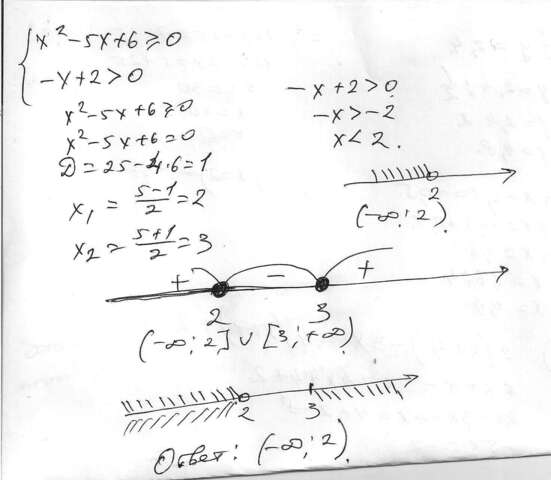 x²-5x+6≥0
-x+2>0
x²-5x+6≥0
x²-5x+6=0
D=25-4·6=1
x₁ = (5-1)/2 = 2
x₂ = (5+1)/2 = 3
-x+2>0
-x>-2
x<2.
2
(-∞; 2).
+ - +
2 3
(-∞; 2] ∪ [3; +∞)
2 3
Ответ: (-∞; 2).